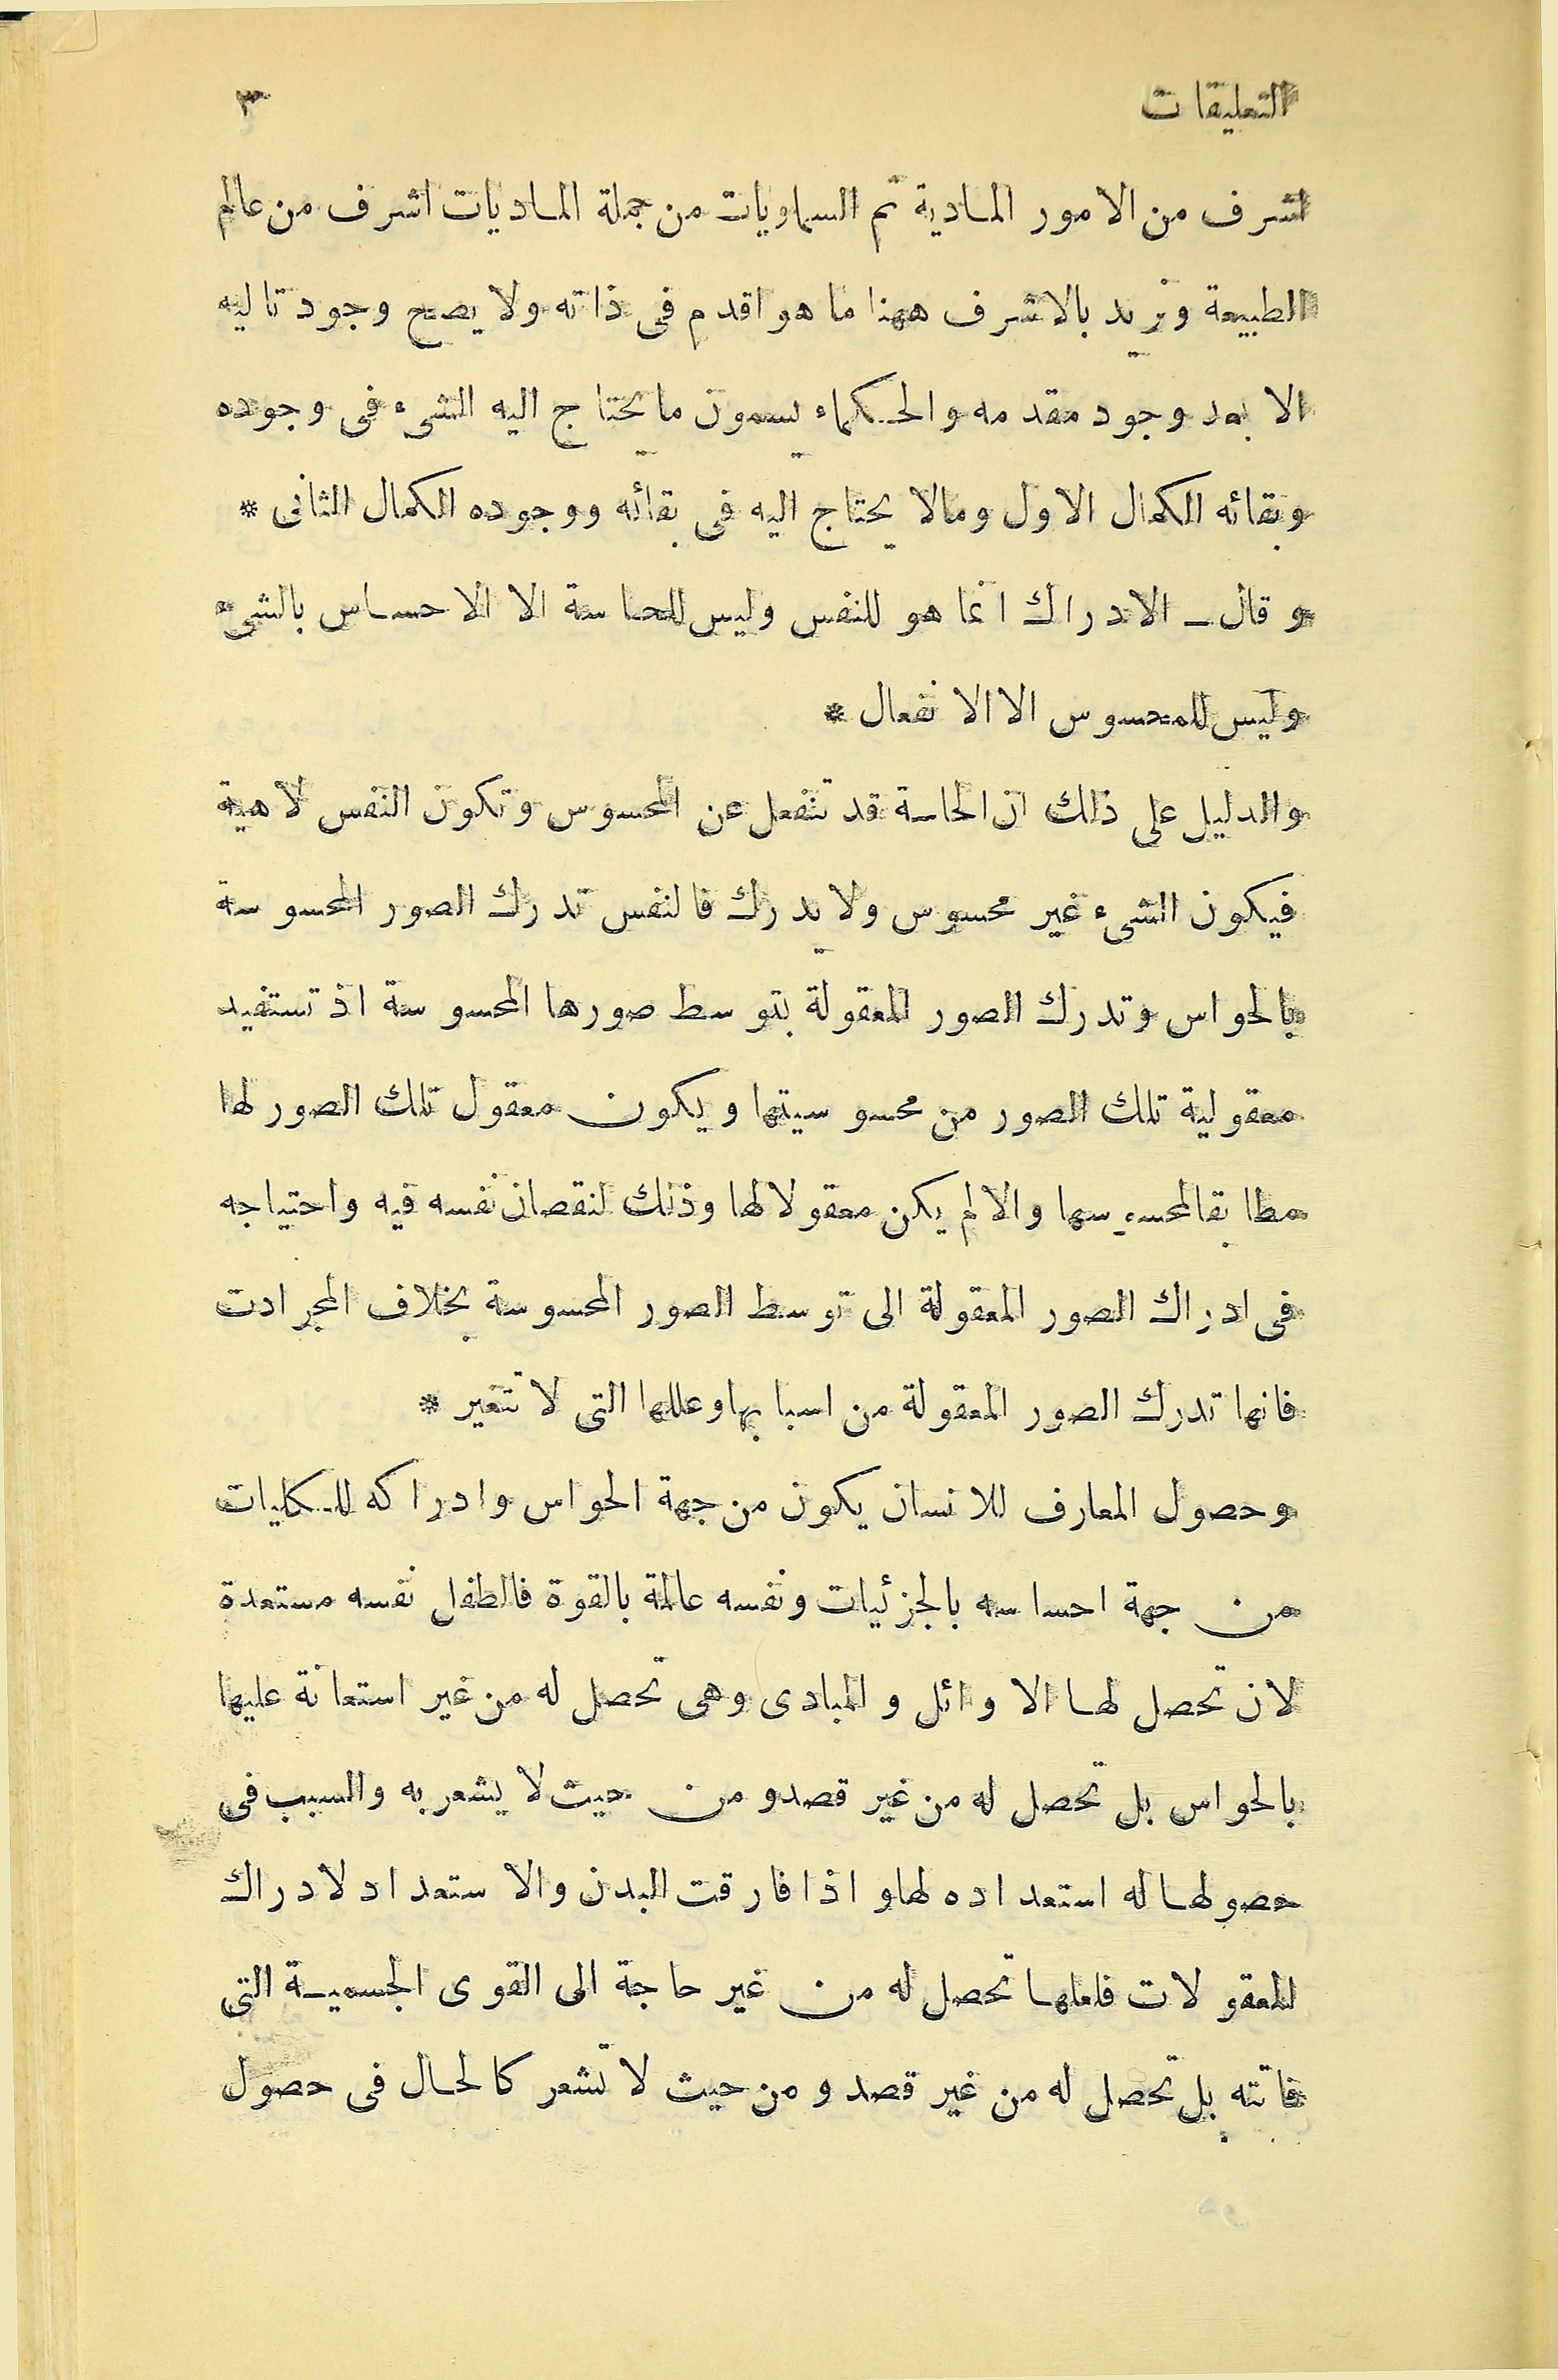 التعليقات ٣
اشرف من الامور المادية ثم السماويات من جملة الماديات اشرف من عالم
الطبيعة ونريد بالاشرف ههنا ما هو اقدم فى ذاته ولا يصح وجود تاليه
الا بعد وجود مقدمه والحكماء يسمون ما يحتاج اليه الشىء فى وجوده
وبقائه الكمال الاول ومالا يحتاج اليه فى بقائه ووجوده الكمال الثانى *
وقال ــ الادراك انما هو للنفس وليس للحاسة الا الاحساس بالشىء
وليس للمحسوس الا الانفعال *
والدليل على ذلك ان الحاسة قد تنفعل عن المحسوس وتكون النفس لاهية
فيكون الشىء غير محسوس ولا يدرك فالنفس تدرك الصور المحسوسة
بالحواس وتدرك الصور المعقولة بتوسط صورها المحسوسة اذ تستفيد
معقولية تلك الصور من محسوسيتها ويكون معقول تلك الصور لها
مطابقا لمحسوسها والا لم يكن معقولا لها وذلك لنقصان نفسه فيه واحتياجه
فى ادراك الصور المعقولة الى توسط الصور المحسوسة بخلاف المجردات
فانها تدرك الصور المعقولة من اسبابها وعللها التى لا تتغير *
وحصول المعارف للانسان يكون من جهة الحواس وادراكه للكليات
من جهة احساسه بالجزئيات ونفسه عالمة بالقوة فالطفل نفسه مستعدة
لان تحصل لها الاوائل والمبادى وهى تحصل له من غير استعانة عليها
بالحواس بل تحصل له من غير قصد ومن حيث لا يشعر به والسبب فى
حصولها له استعداده لها واذا فارقت البدن والاستعداد لادراك
المعقولات فلعلها تحصل له من غير حاجة الى القوى الجسمية التى
فاتته بل تحصل له من غير قصد ومن حيث لا تشعر كالحال فى حصول